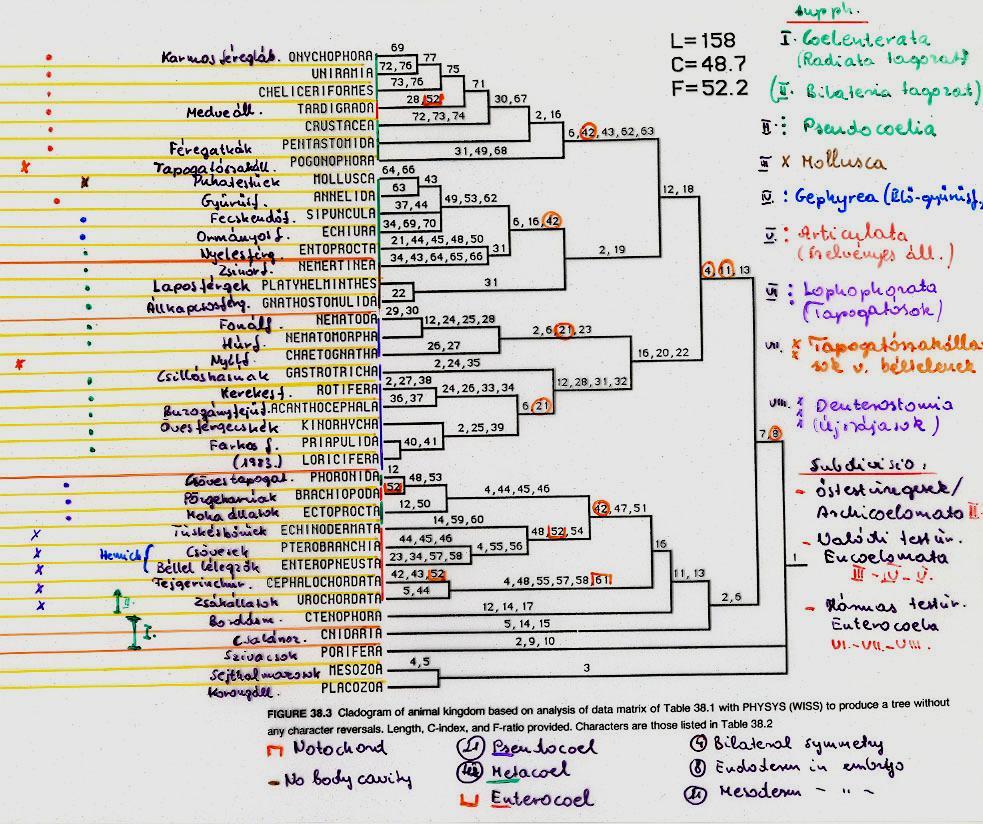 supph.
L=158
C=48.7
F=52.2
I. Coelenterata
(Radiata tagozat)
(II. Bilateria tagozat)
II. Pseudocoelia
III x Mollusca
IV. : Gephyrea (Elő-gyűrűsf.
V. : Articulata
(szelvényes áll.)
VI : Lophophorata
(Tapogatósok)
VII. x Tapogatószakálla
sok v. béltelenek
VIII. x Deuterostomia
(Újszájasok)
Subdivisio.
- őstestüregesek/
Archicoelomata II-
- Valódi testür.
Eucoelomata
III - IV - V.
- Hármas testür.
Enterocoela
VI.-VII.-VIII.
Karmos féregláb. ONYCHOPHORA 69
UNIRAMIA 72,76 77
CHELICERIFORMES 73,76 75
Medveáll. TARDIGRADA 28,52 71
CRUSTACEA 72,73,74 30,67
Féregatkák PENTASTOMIDA 2,16 6,42,43,62,63
Tapogatószakáll. POGONOPHORA 31,49,68
Puhatestűek MOLLUSCA 64,66
Gyűrűsf. ANNELIDA 63 43 12,18
Fecskendőf. SIPUNCULA 37,44 49,53,62
Ormányosf. ECHIURA 34,69,70 6,16,42
Nyelesférg. ENTOPROCTA 21,44,45,48,50
Zsinórf. NEMERTINEA 34,43,64,65,66 31 2,19
Laposférgek PLATYHELMINTHES 31 4,11,13
Állkapcsosférg. GNATHOSTOMULIDA 22
Fonálf. NEMATODA 29,30
Húrf. NEMATOMORPHA 12,24,25,28 2,6,21,23
Nyílf. CHAETOGNATHA 26,27 16,20,22
Csillóshasúak GASTROTRICHA 2,24,35
Kerekesf. ROTIFERA 2,27,38 24,26,33,34 12,28,31,32
Buzogányfejűf. ACANTHOCEPHALA 36,37 6,21
Övesférgecskék KINORHYCHA 2,25,39
Farkos f. PRIAPULIDA 40,41 7,8
(1983.) LORICIFERA
Csöves tapogat. PHORONIDA 12 48,53
Pörgekarúak BRACHIOPODA 52 4,44,45,46
Mohaállatok ECTOPROCTA 12,50 42,47,51
Tüskésbőrűek ECHINODERMATA 14,59,60
Hemich. Csövesek PTEROBRANCHIA 44,45,46 48,52,54
Béllel lélegzők ENTEROPNEUSTA 23,34,57,58 4,55,56 16 1
Fejgerinchúr. CEPHALOCHORDATA 42,43,52 4,48,55,57,58,61 11,13
Zsákállatok UROCHORDATA 5,44
II.
Bordásm. CTENOPHORA 12,14,17 2,6
I.
Csalánoz. CNIDARIA 5,14,15
Szivacsok PORIFERA 2,9,10
Sejthalmazosok MESOZOA 4,5 3
Korongáll. PLACOZOA
FIGURE 38.3 Cladogram of animal kingdom based on analysis of data matrix of Table 38.1 with PHYSYS (WISS) to produce a tree without
any character reversals. Length, C-index, and F-ratio provided. Characters are those listed in Table 38.2
Notochord
- No body cavity
(21) Pseudocoel
(42) Metacoel
Enterocoel
(4) Bilateral symmetry
(8) Endoderm in embryo
(11) Mesoderm - " -